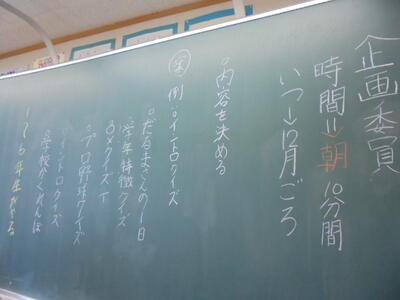 企画委員
時間⇒朝10分間
いつ→12月ごろ
○内容を決める
例:○イントロクイズ
○だるまさんの1日
○学年特徴クイズ
○○×クイズ
○プロ野球クイズ
イントロクイズ
○学校かくれんぼ